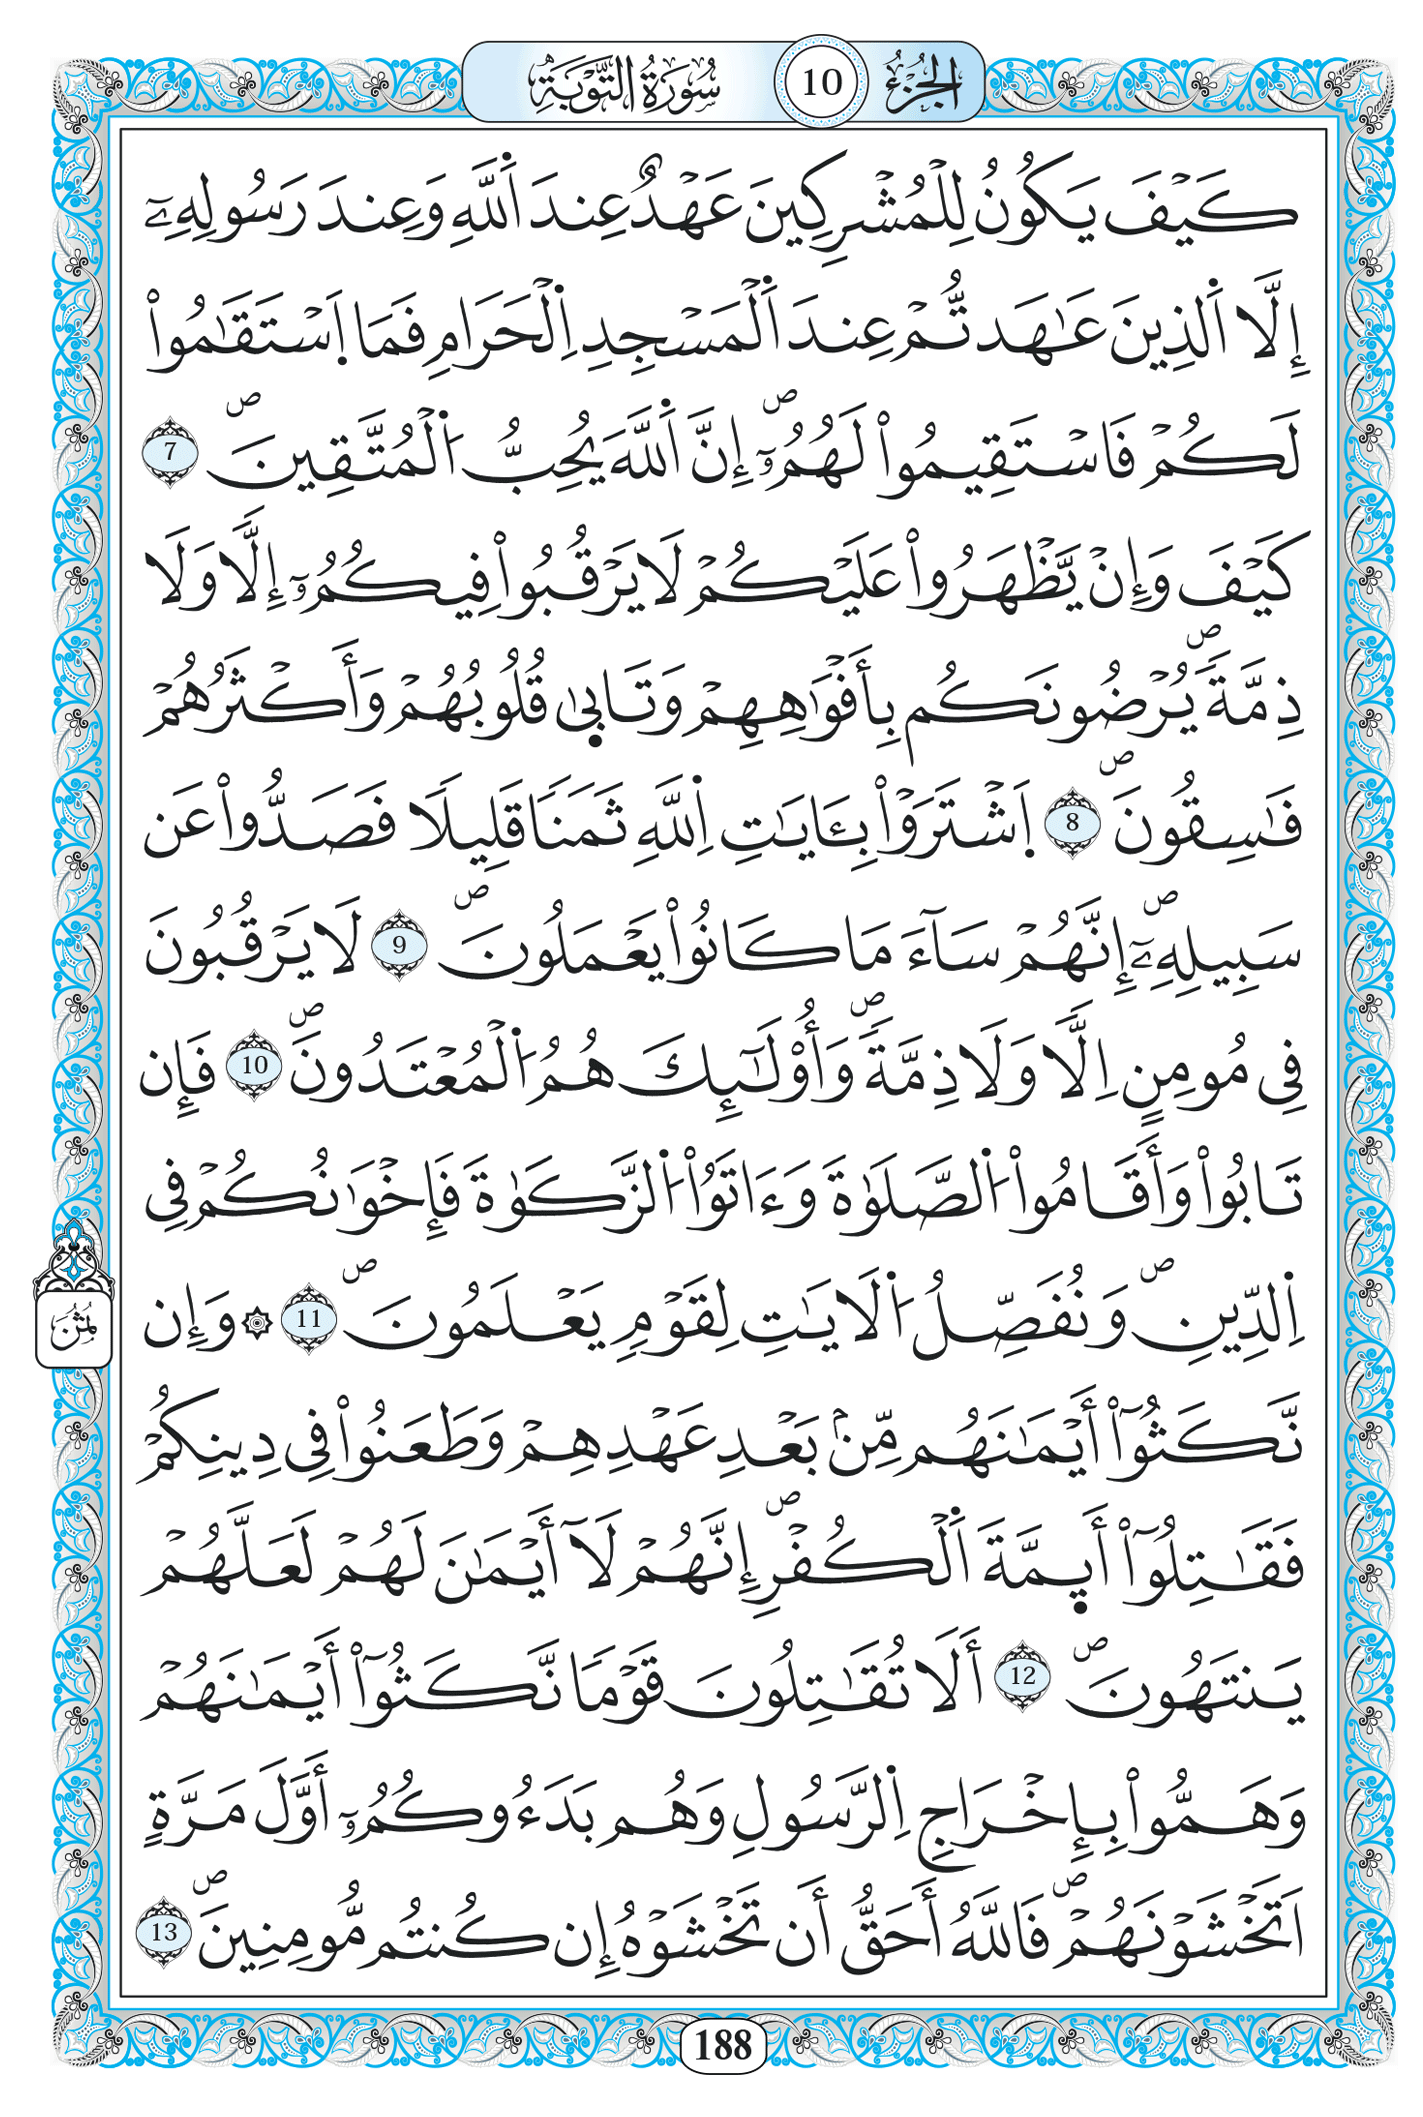 الجُزْءُ 10 سُورَةُ التَّوْبَةِ
كَيْفَ يَكُونُ لِلْمُشْرِكِينَ عَهْدٌ عِندَ اَ۬للَّهِ وَعِندَ رَسُولِهِۦٓ
إِلَّا اَ۬لذِينَ عَٰهَدتُّمْ عِندَ اَ۬لْمَسْجِدِ اِ۬لْحَرَامِ فَمَا اَ۪سْتَقَٰمُواْ
لَكُمْ فَاسْتَقِيمُواْ لَهُمُۥٓۖ إِنَّ اَ۬للَّهَ يُحِبُّ اُ۬لْمُتَّقِينَۖ 7
كَيْفَ وَإِنْ يَّظْهَرُواْ عَلَيْكُمْ لَا يَرْقُبُواْ فِيكُمُۥٓ إِلّاٗ وَلَا
ذِمَّةٗۖ يُرْضُونَكُم بِأَفْوَٰهِهِمْ وَتَأْبيٰ قُلُوبُهُمْ وَأَكْثَرُهُمْ
فَٰسِقُونَۖ 8 اَ۪شْتَرَوْاْ بِـَٔايَٰتِ اِ۬للَّهِ ثَمَناٗ قَلِيلاٗ فَصَدُّواْ عَن
سَبِيلِهِۦٓۖ إِنَّهُمْ سَآءَ مَا كَانُواْ يَعْمَلُونَۖ 9 لَا يَرْقُبُونَ
فِے مُومِنٍ اِلّاٗ وَلَا ذِمَّةٗۖ وَأُوْلَٰٓئِكَ هُمُ اُ۬لْمُعْتَدُونَۖ 10 فَإِن
تَابُواْ وَأَقَامُواْ اُ۬لصَّلَوٰةَ وَءَاتَوُاْ اُ۬لزَّكَوٰةَ فَإِخْوَٰنُكُمْ فِے
اِ۬لدِّينِۖ وَنُفَصِّلُ اُ۬لَايَٰتِ لِقَوْمٖ يَعْلَمُونَۖ 11 ۞ وَإِن
نَّكَثُوٓاْ أَيْمَٰنَهُم مِّنۢ بَعْدِ عَهْدِهِمْ وَطَعَنُواْ فِے دِينِكُمْ
فَقَٰتِلُوٓاْ أَي۪مَّةَ اَ۬لْكُفْرِۖ إِنَّهُمْ لَآ أَيْمَٰنَ لَهُمْ لَعَلَّهُمْ
يَنتَهُونَۖ 12 أَلَا تُقَٰتِلُونَ قَوْماٗ نَّكَثُوٓاْ أَيْمَٰنَهُمْ
وَهَمُّواْ بِإِخْرَاجِ اِ۬لرَّسُولِ وَهُم بَدَءُوكُمُۥٓ أَوَّلَ مَرَّةٍ
اَتَخْشَوْنَهُمْۖ فَاللَّهُ أَحَقُّ أَن تَخْشَوْهُ إِن كُنتُم مُّومِنِينَۖ 13
ثُمُن
188